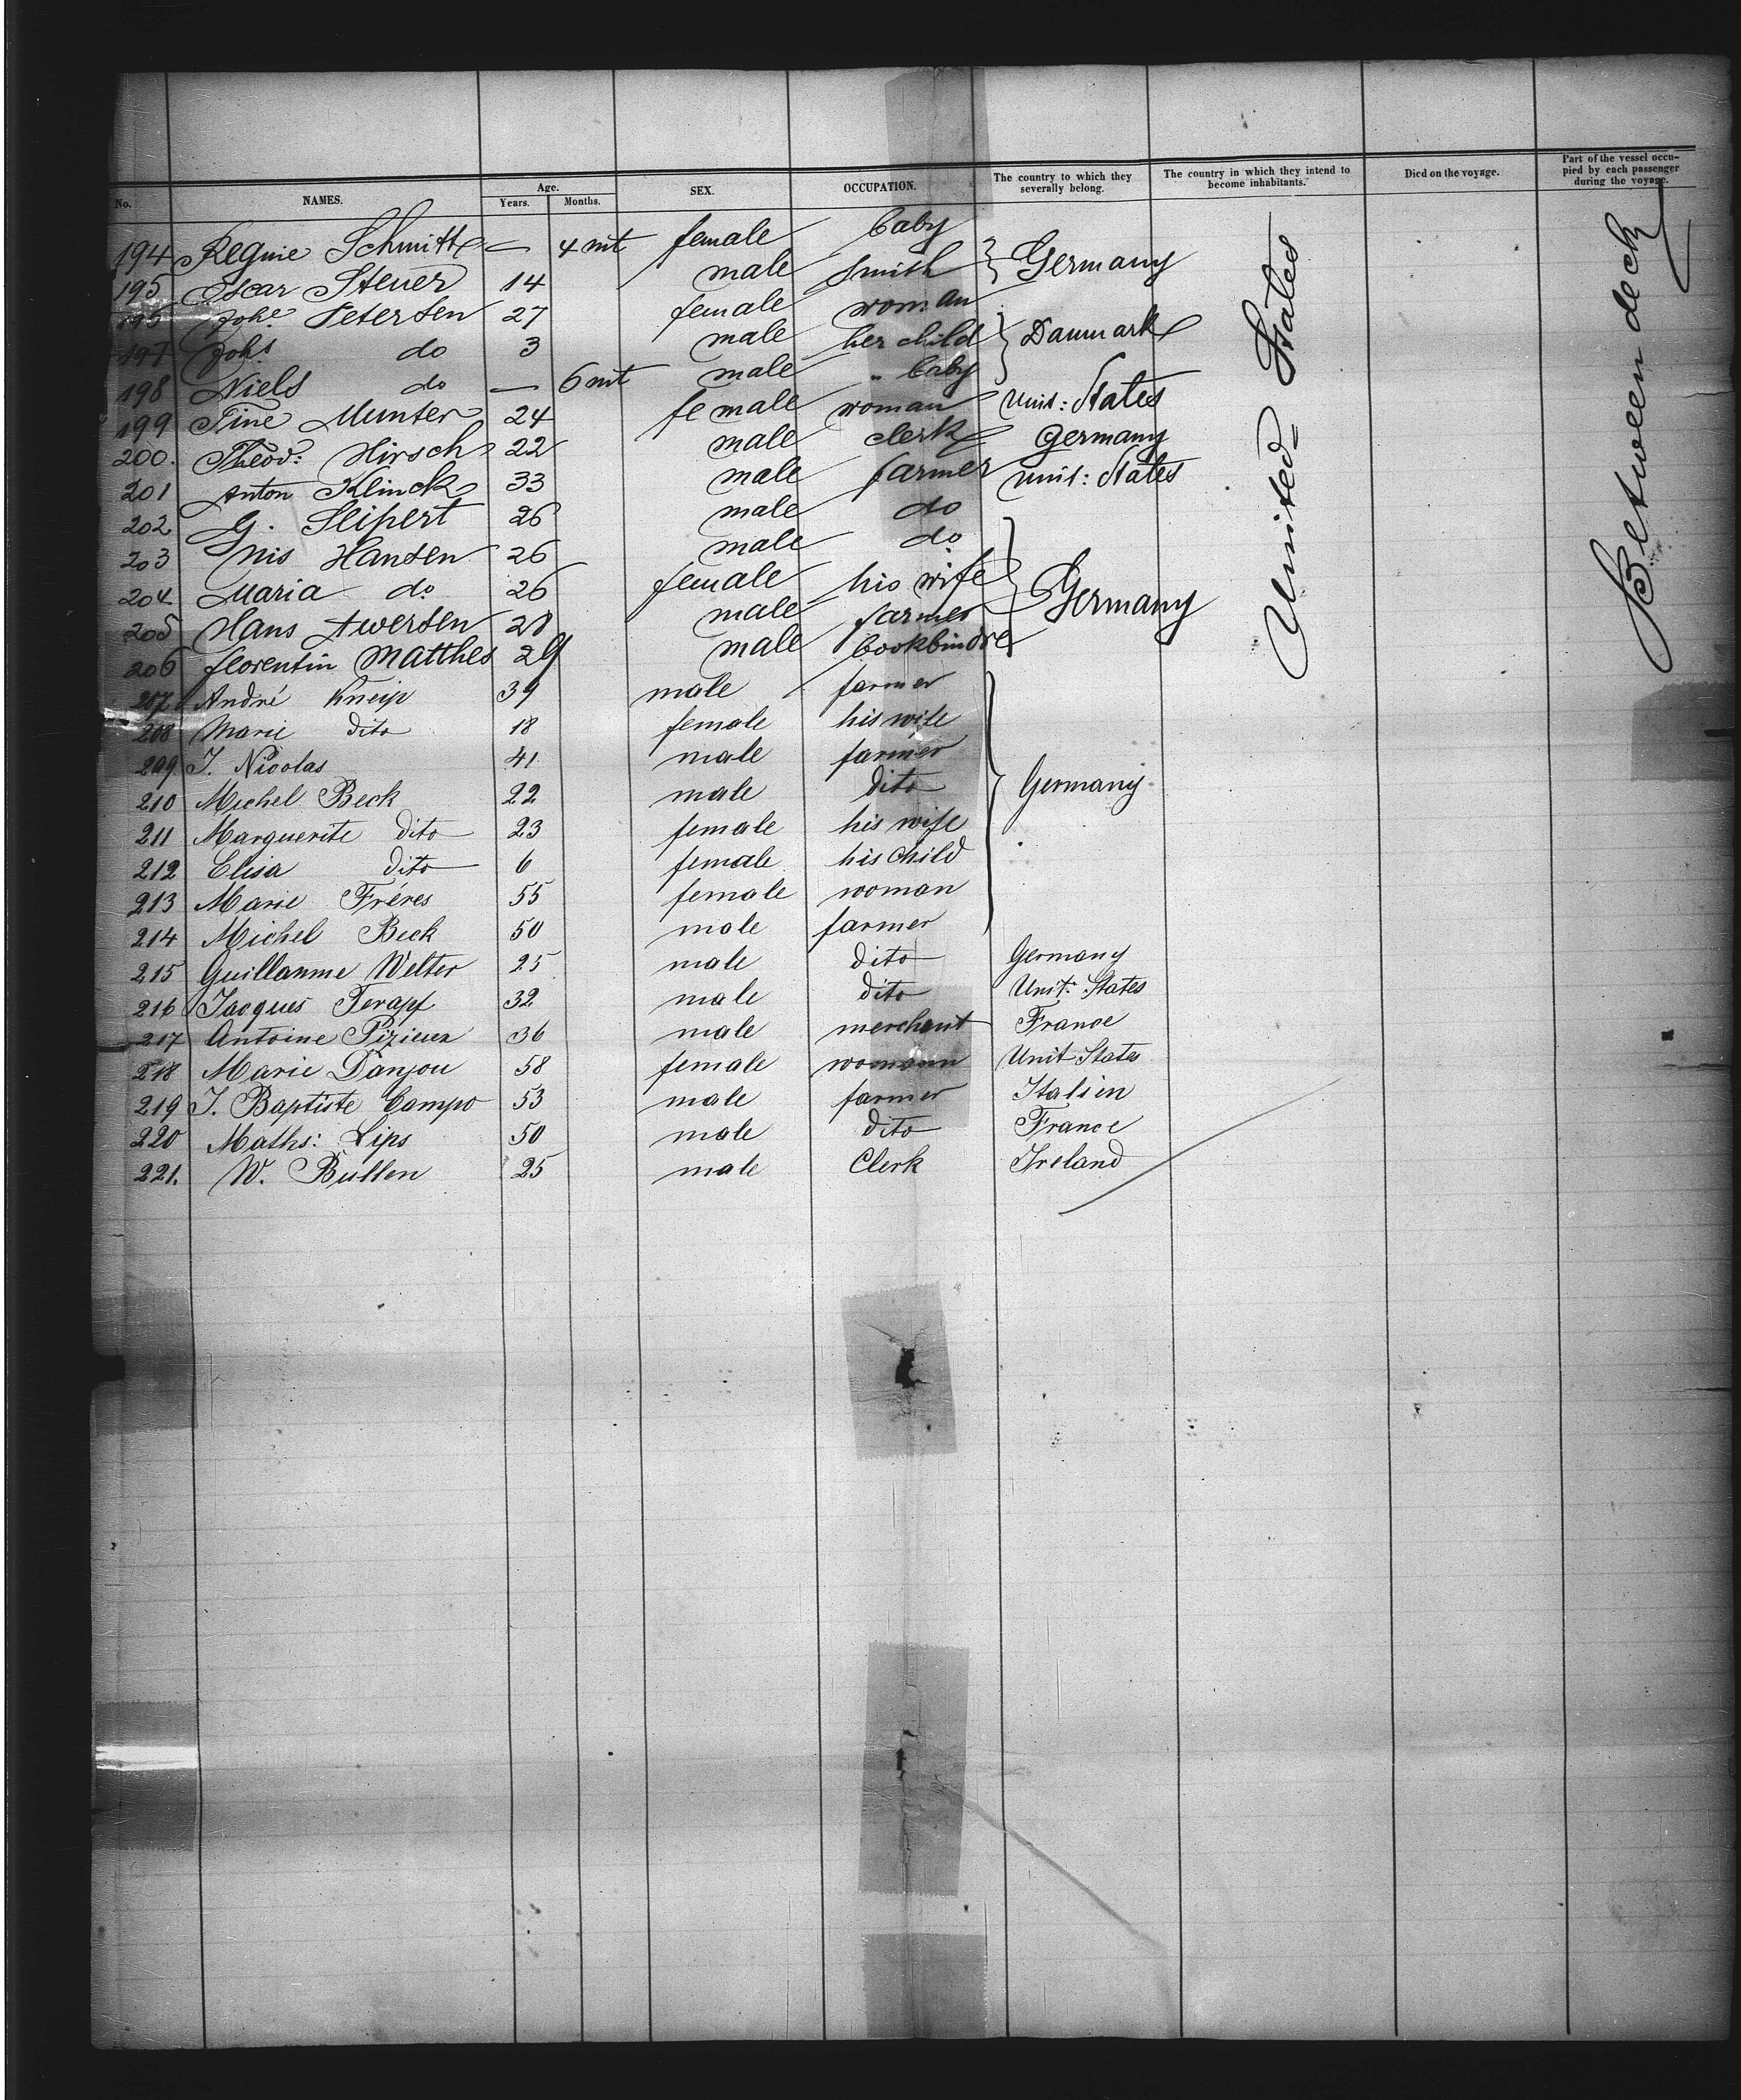 No. NAMES. Age. Years. Months. SEX. OCCUPATION. The country to which they severally belong. The country in which they intend to become inhabitants. Died on the voyage. Part of the vessel occupied by each passenger during the voyage.
194 Regine Schmitt — 4 mt female baby
195 Oscar Steuer 14 male smith } Germany
196 Johe Petersen 27 female woman
197 Johs do 3 male her child } Danmark
198 Niels do — 6 mt male " baby
199 Tine Munter 24 female woman Unit: States
200. Theod: Hirsch 22 male clerk Germany
201 Anton Klinck 33 male farmer Unit: States
202 G. Seipert 26 male do
203 Nis Hansen 26 male do
204 Maria do 26 female his wife } Germany
205 Hans Awersen 28 male farmer
206 Florentin Matthes 29 male bookbindre
207 André Kneip 39 male farmer
208 Marie dito 18 female his wife
209 J. Nicolas 41 male farmer
210 Michel Beck 22 male dito } Germany
211 Marguerite dito 23 female his wife
212 Elisa dito 6 female his child
213 Marie Fréres 55 female woman
214 Michel Beck 50 male farmer
215 Guillaume Welter 25 male dito Germany
216 Jacques Terapf 32 male dito Unit: States
217 Antoine 36 male merchant France
218 Marie Danjou 58 female womann Unit States
219 J. Baptiste Campo 53 male farmer Italien
220 Maths: Lips 50 male dito France
221. W. Bullen 25 male Clerk Ireland
United States
Between deck